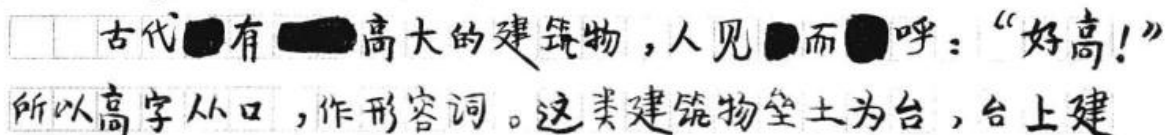 古代有高大的建筑物，人见而呼：“好高！”
所以高字从口，作形容词。这类建筑物垒土为台，台上建